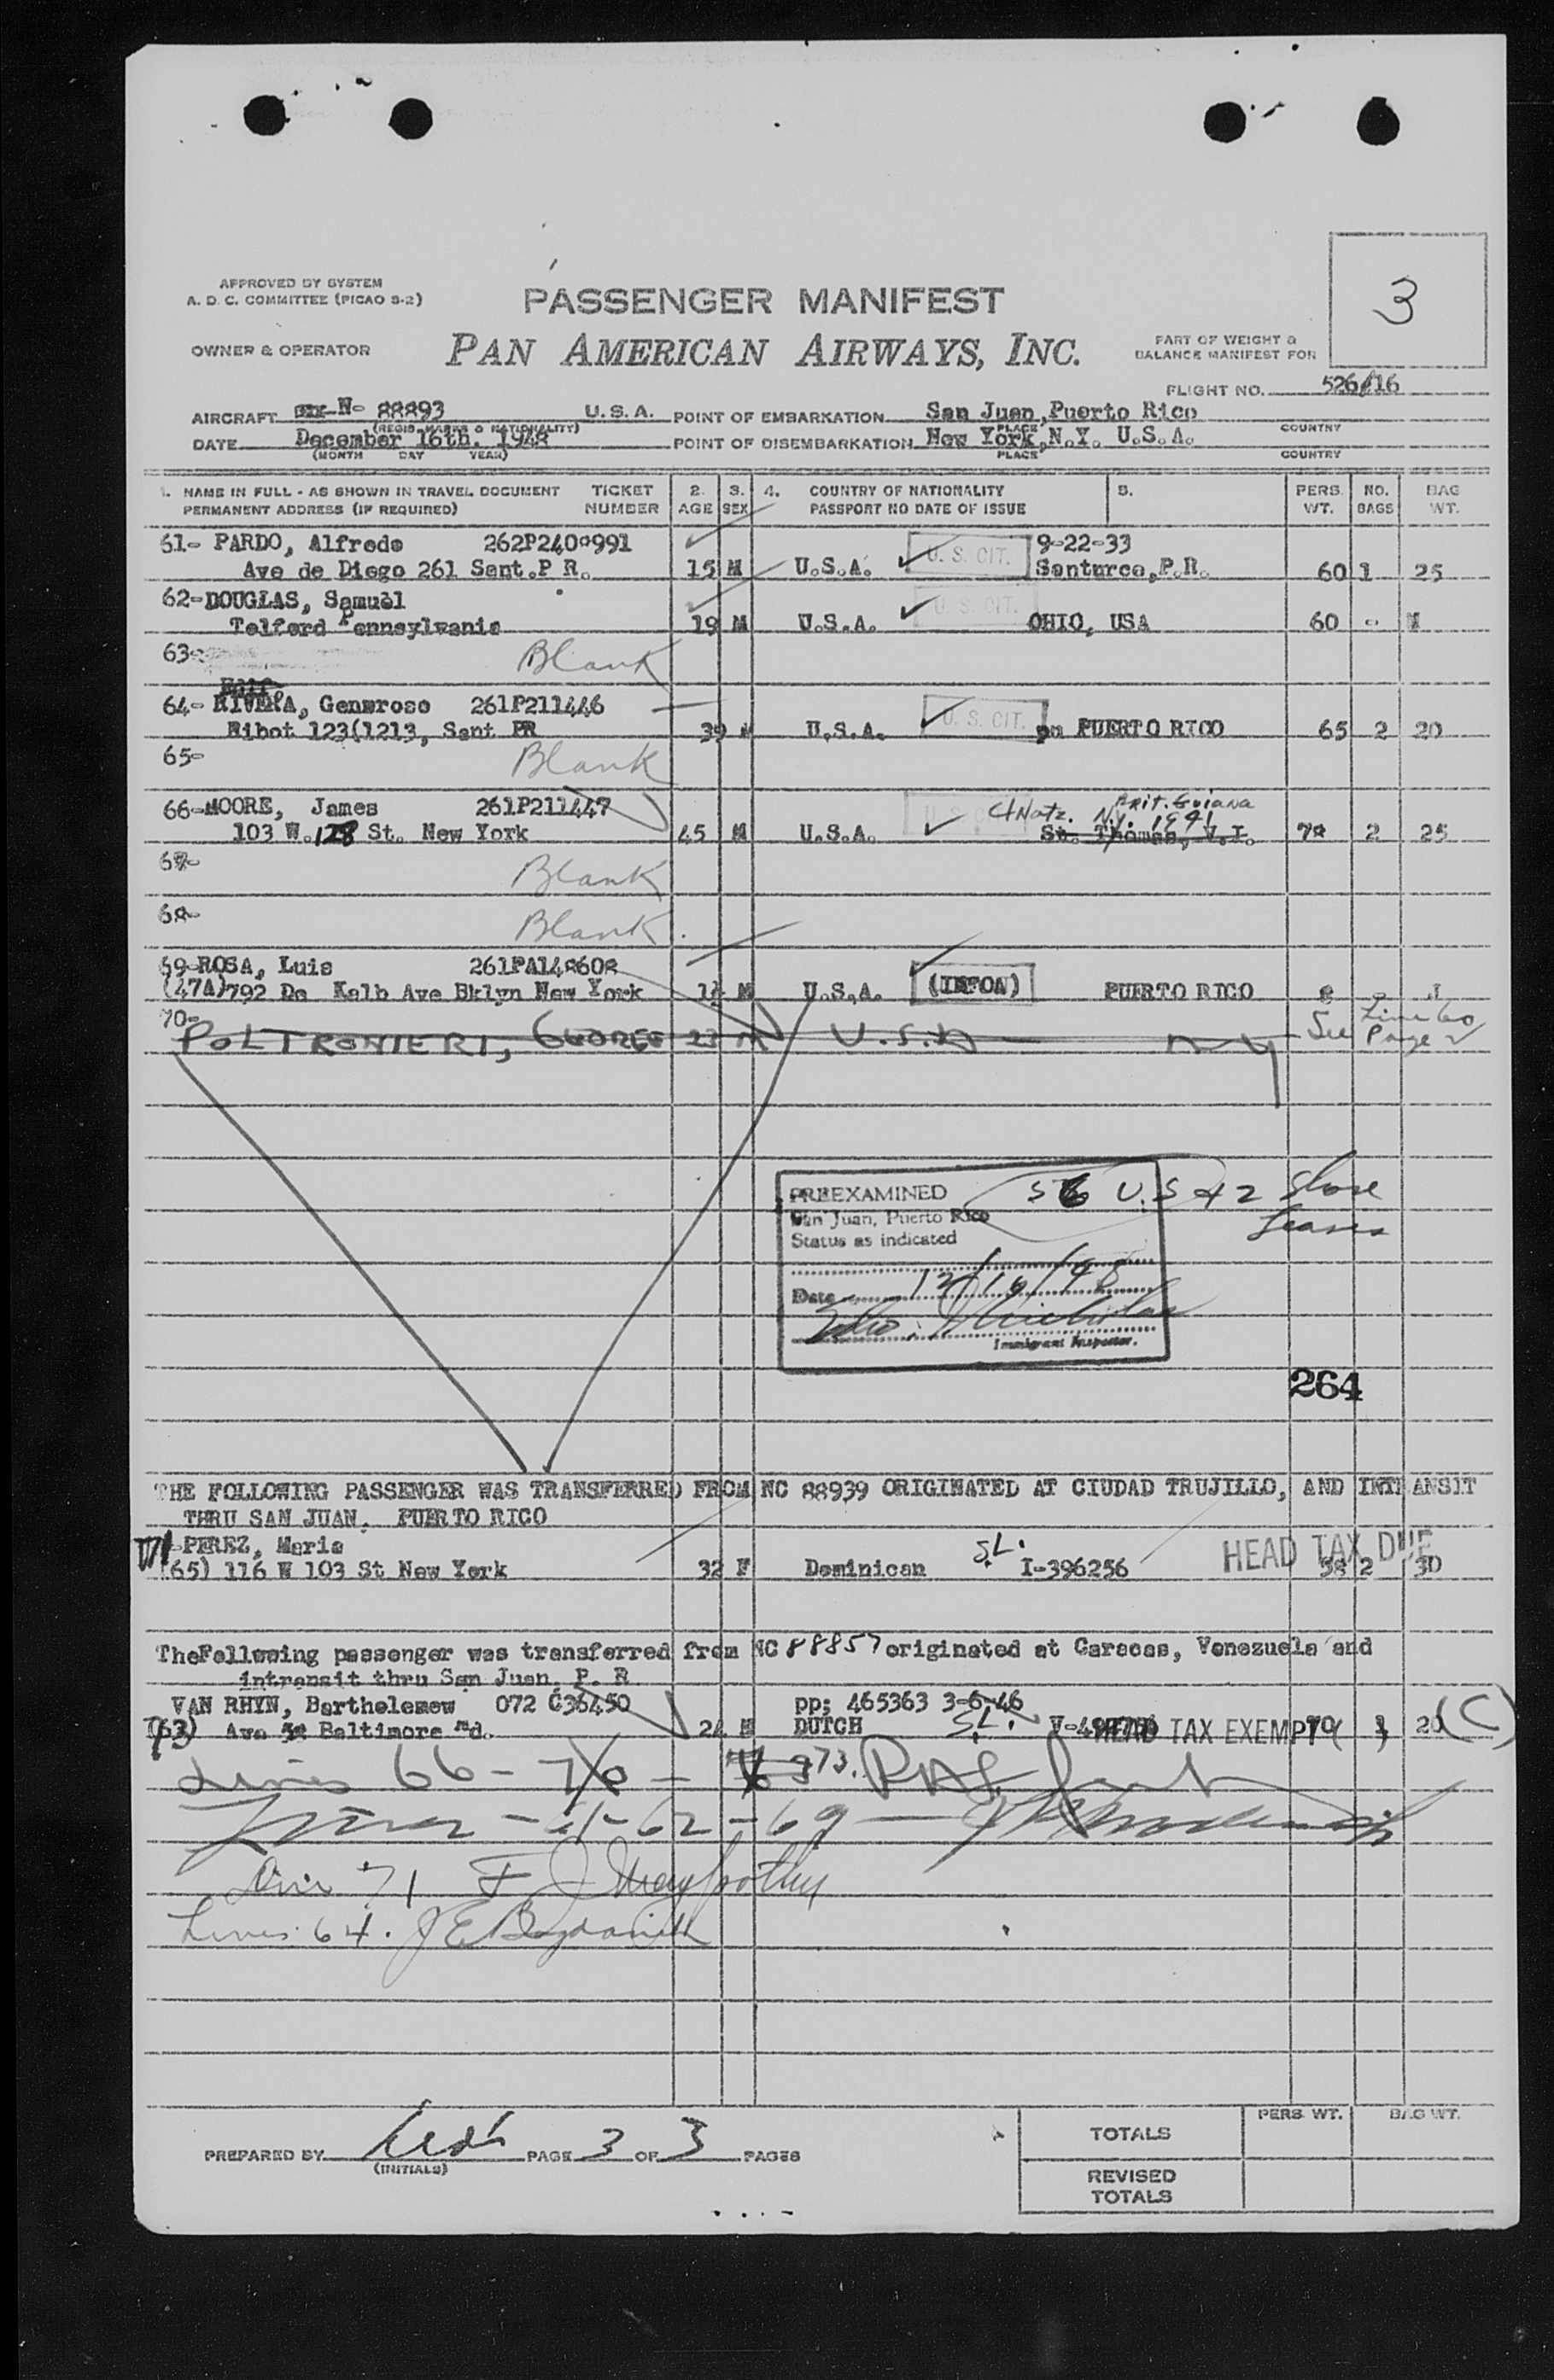 3
APPROVED BY SYSTEM
A. D. C. COMMITTEE (PICAO S-2)
PASSENGER MANIFEST
OWNER & OPERATOR
PAN AMERICAN AIRWAYS, INC.
PART OF WEIGHT &
BALANCE MANIFEST FOR
FLIGHT NO. 526/16
AIRCRAFT N- 88893 U. S. A. POINT OF EMBARKATION San Juan, Puerto Rico
(REGIS. MARKS & NATIONALITY) PLACE COUNTRY
DATE December 16th. 1948 POINT OF DISEMBARKATION New York, N.Y. U.S.A.
(MONTH DAY YEAR) PLACE COUNTRY
1. NAME IN FULL - AS SHOWN IN TRAVEL DOCUMENT TICKET 2. 3. 4. COUNTRY OF NATIONALITY 5. PERS. NO. BAG
PERMANENT ADDRESS (IF REQUIRED) NUMBER AGE SEX PASSPORT NO DATE OF ISSUE WT. BAGS WT.
61- PARDO, Alfredo 262P2400991 U. S. CIT. 9-22-33
Ave de Diego 261 Sant. P R. 15 M U.S.A. Santurce, P.R. 60 1 25
62- DOUGLAS, Samuel U. S. CIT.
Telford Pennsylvania 19 M U.S.A. OHIO, USA 60 -
63- Blank
64- RIVERA, Generoso 261P211446 U. S. CIT.
Ribot 123(1213, Sant PR 39 M U.S.A. PUERTO RICO 65 2 20
65- Blank
66- MOORE, James 261P211447 Brit. Guiana
N.Y. 1941
103 W. 128 St. New York 45 M U.S.A. St. Thomas, V.I. 2 25
67- Blank
68- Blank
69- ROSA, Luis 261PA148608
(47A) 792 De Kalb Ave Bklyn New York M U.S.A. PUERTO RICO
70-
POLTRONIERI, GEORGE 23 M U.S.A NY See Line 60
Page 2
PREEXAMINED 56 U.S 42
San Juan, Puerto Rico
Status as indicated
Date 12/16/48
Immigrant Inspector.
264
THE FOLLOWING PASSENGER WAS TRANSFERRED FROM NC 88939 ORIGINATED AT CIUDAD TRUJILLO, AND INTRANSIT
THRU SAN JUAN, PUERTO RICO
71- PEREZ, Maria S.L. HEAD TAX DUE
(65) 116 W 103 St New York 32 F Dominican I-396256 58 2 30
TheFollowing passenger was transferred from NC 88857 originated at Caracas, Venezuela and
intransit thru San Juan, P. R
VAN RHYN, Bartholemew 072 C36450 pp; 465363 3-6-46
(63) Ave Baltimore Md. 24 M DUTCH S.L. HEAD TAX EXEMPT 20 (C)
Lines 66 - 70 - 73.
Lines - 61 - 62 - 69 -
Line 71 F J
Lines 64. J E
PREPARED BY PAGE 3 OF 3 PAGES
(INITIALS)
PERS WT. BAG WT.
TOTALS
REVISED
TOTALS